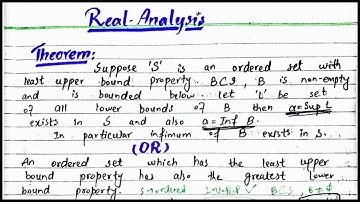 Real-Analysis
Theorem:
Suppose 'S' is an ordered set with
least upper bound property. BCS, B is non-empty
and is bounded below. let 'L' be set
of all lower bounds of B then a=Sup L
exists in S and also a=Inf B.
In particular infimum of B exists in S...
(OR)
An ordered set which has the least upper
bound property has also the greatest lower
bound property. S→ordered BCS, B≠Φ